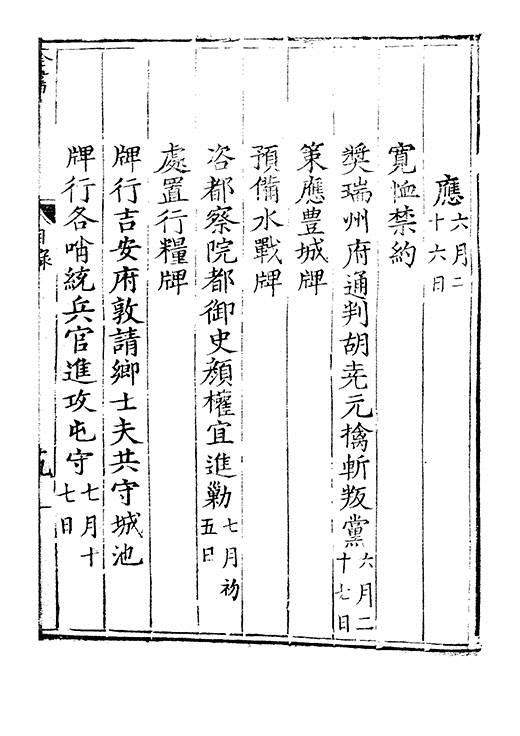 應六月二十六日
寬恤禁約
奬瑞州府通判胡堯元擒斬叛黨六月二十七日
策應豊城牌
預備水戰牌
咨都察院都御史顔權宜進勦七月初五日
處置行糧牌
牌行吉安府敦請鄉士夫共守城池
牌行各哨統兵官進攻屯守七月十七日
目錄